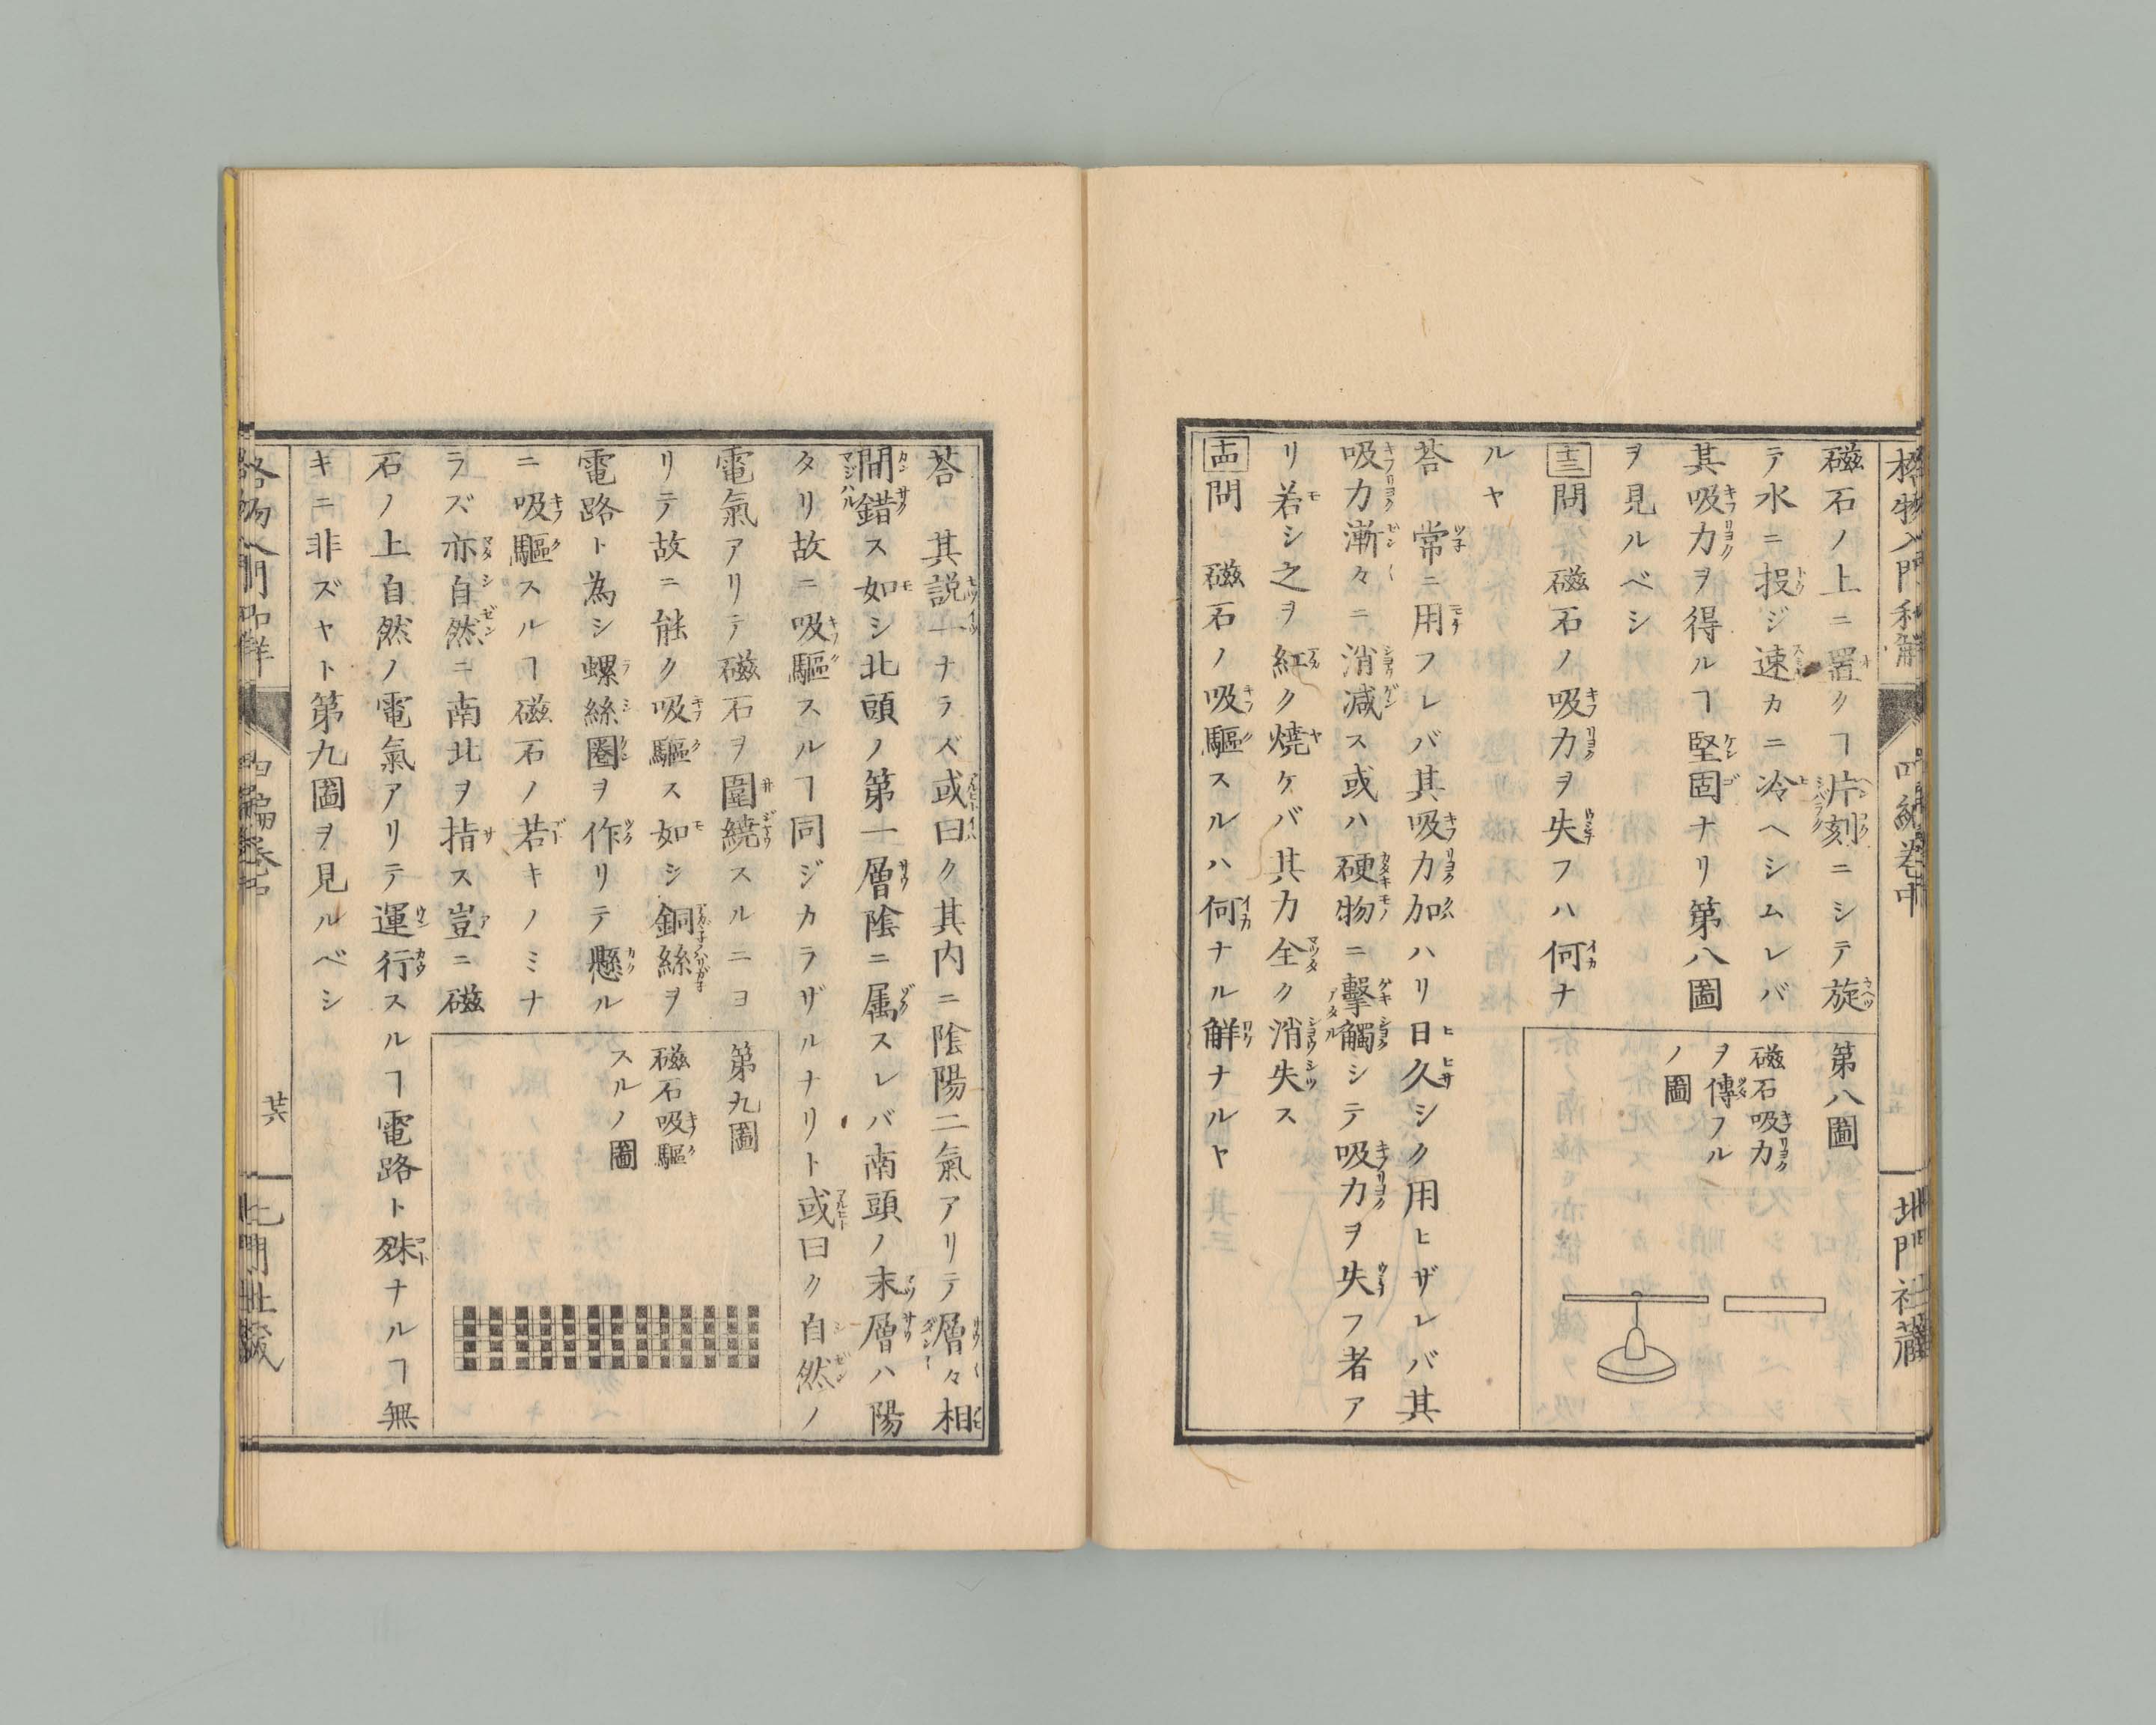 格物入門和解
四編卷中
北門社藏
磁石ノ上ニ置クヿ片刻ニシテ旋
テ水ニ投ジ速カニ冷ヘシムレバ
其吸力ヲ得ルヿ堅固ナリ第八圖
ヲ見ルベシ
第八圖
磁石吸力
ヲ傳フル
ノ圖
十三問 磁石ノ吸力ヲ失フハ何ナ
ルヤ
答 常ニ用フレバ其吸力加ハリ日久シク用ヒザレバ其
吸力漸々ニ消減ス或ハ硬物ニ擊觸シテ吸力ヲ失フ者ア
リ若シ之ヲ紅ク燒ケバ其力全ク消失ス
十四問 磁石ノ吸驅スルハ何ナル解ナルヤ
答 其説一ナラズ或曰ク其内ニ陰陽二氣アリテ層々相
間錯ス如シ北頭ノ第一層陰ニ属スレバ南頭ノ末層ハ陽
タリ故ニ吸驅スルヿ同ジカラザルナリト或曰ク自然ノ
電氣アリテ磁石ヲ圍繞スルニヨ
リテ故ニ能ク吸驅ス如シ銅絲ヲ
電路ト為シ螺絲圈ヲ作リテ懸ル
ニ吸驅スルヿ磁石ノ若キノミナ
ラズ亦自然ニ南北ヲ指ス豈ニ磁
石ノ上自然ノ電氣アリテ運行スルヿ電路ト殊ナルヿ無
キニ非ズヤト第九圖ヲ見ルベシ
第九圖
磁石吸驅
スルノ圖
格物入門和解
四編卷中
廿六
北門社藏